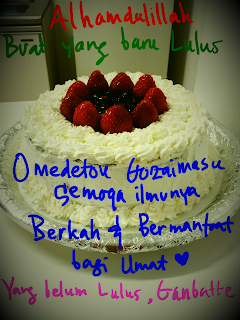 Alhamdulillah
Buat yang baru Lulus
Omedetou Gozaimasu
Semoga ilmunya
Berkah & Bermanfaat
bagi Umat ♥
Yang belum Lulus, Ganbatte